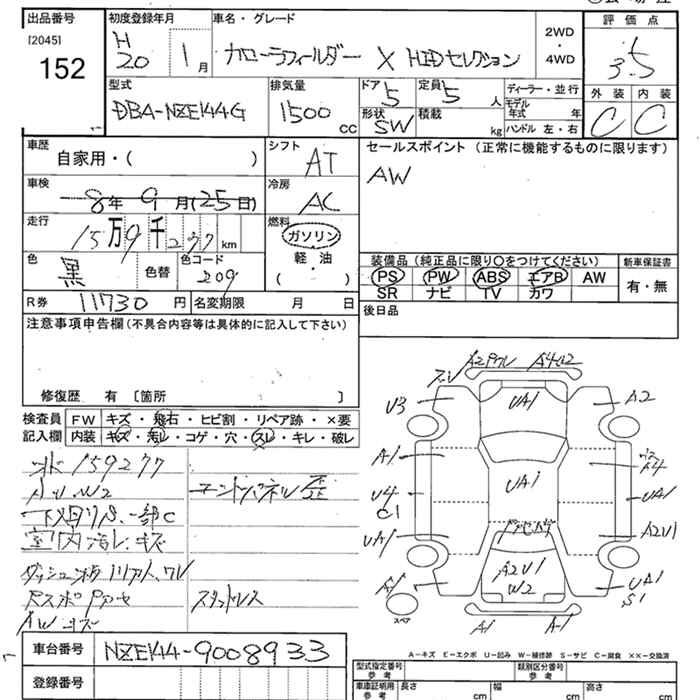 出品番号 初度登録年月 車名・グレード 2WD 評価点
[2045] H
152 20 1月 カローラフィールダー X HIDセレクション ・ 4WD 3.5
外装 内装
型式 排気量 ドア 5 定員 5 人 ディーラー・並行
DBA-NZE144G 1500 CC 形状 SW 積載 kg モデル年式 年 C C
ハンドル 左・右
車歴 自家用・( ) シフト AT セールスポイント (正常に機能するものに限ります)
AW
車検 8年 9月(25日) 冷房 AC
走行 15万9千277km 燃料 ガソリン
軽・油
(・)
色 黒 色替 色コード 209
装備品 (純正品に限り〇をつけてください) 新車保証書
PS PW ABS エアB AW 有・無
SR ナビ TV カワ
R券 11730円 名変期限 月 日 後日品
注意事項申告欄(不具合内容等は具体的に記入して下さい)
修復歴 有 〔箇所 〕
検査員 FW キズ・飛石・ヒビ割・リペア跡・×要
記入欄 内装 キズ・汚レ・コゲ・穴・スレ・キレ・破レ
159277
W2
下廻りS、一部C
室内汚レ・キズ
スタットレス
AWキズ
A2 U3 A2
UA1
A1
U4 C1 UA1 UA1
UA1 A2U1
A2U1
W2
A1 UA1
S1
スペア
A1 A-1
A-キズ E-エクボ U-凹み W-補修跡 S-サビ C-腐食 ××-交換済
車台番号 NZE144-9008933
登録番号
型式指定番号 参考 類別区分番号 参考
車庫証明用 参考 長さ cm 幅 cm 高さ cm